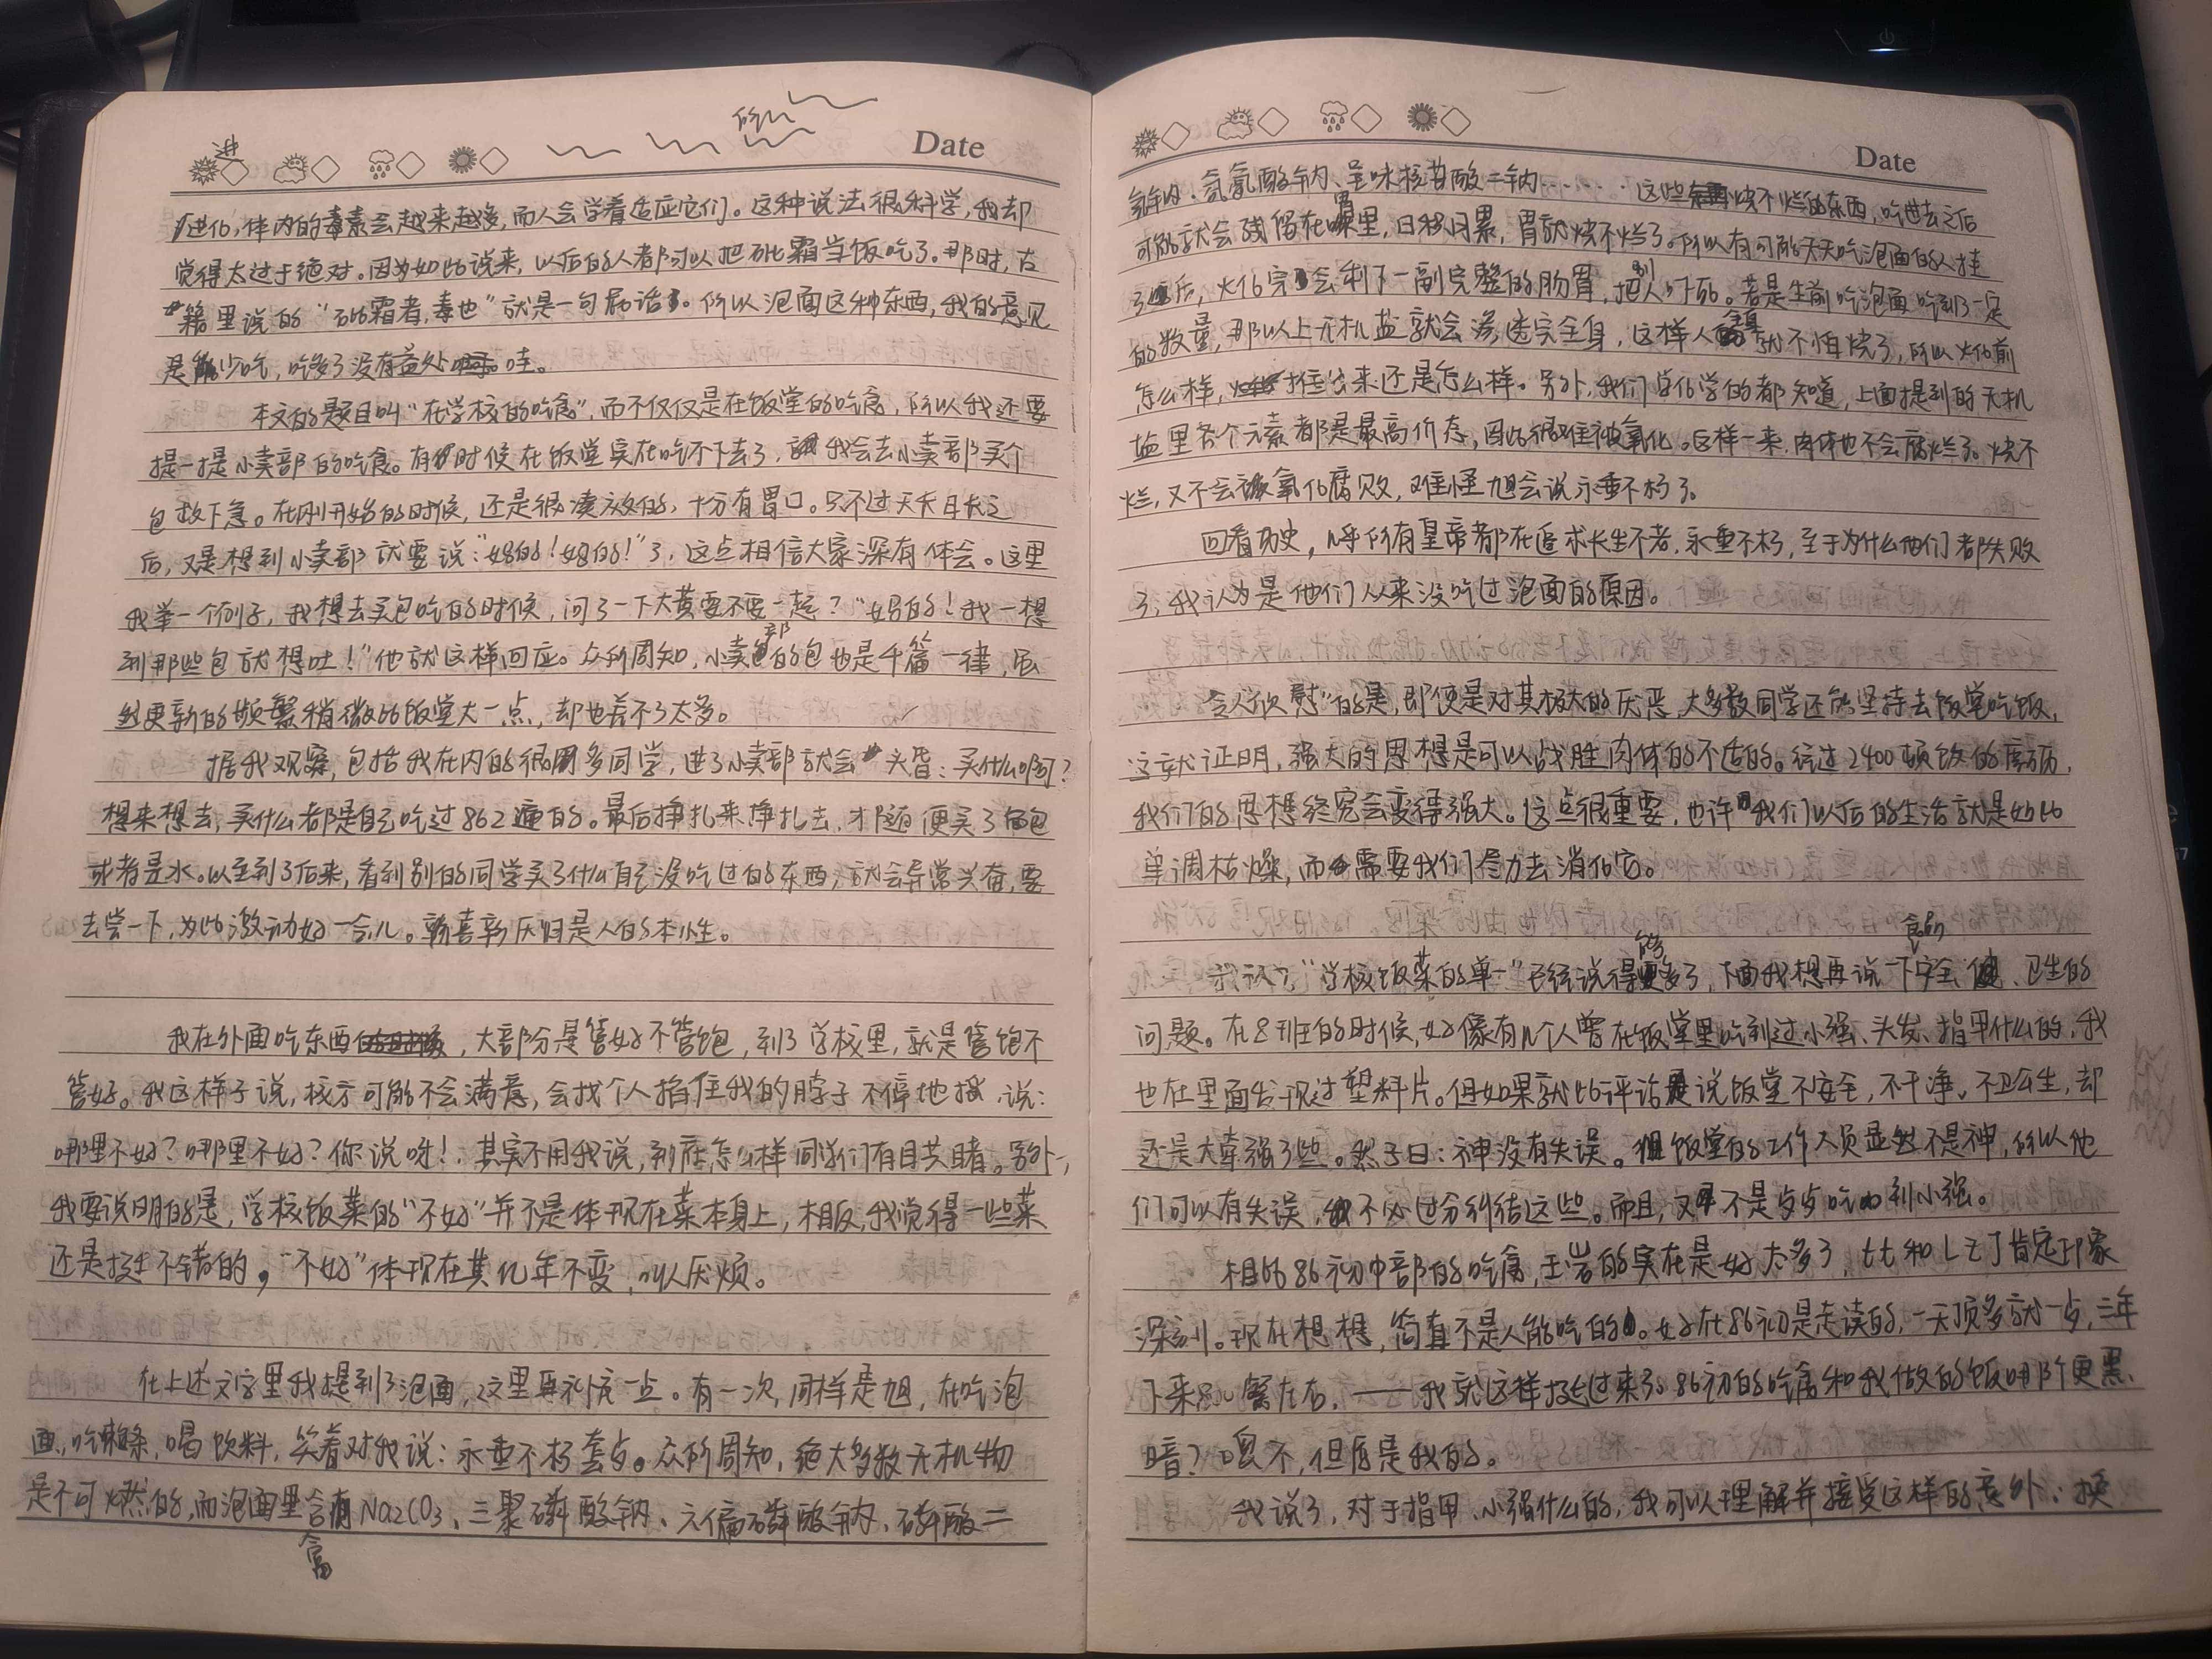 Date
进化，体内的毒素会越来越多，而人会学着适应它们。这种说法很科学，我却
觉得太过于绝对。因为如此说来，以后的人都可以把砒霜当饭吃了。那时，古
籍里说的“砒霜者，毒也”就是一句屁话。所以泡面这种东西，我的意见
是能少吃，吃多了没有益处哇。
本文的题目叫“在学校的吃食”，而不仅仅是在饭堂的吃食，所以我还要
提一提小卖部的吃食。有时候在饭堂实在吃不下去了，我会去小卖部买个
包救下急。在刚开始的时候，还是很凑效的，十分有胃口。只不过天长日长之
后，又是想到小卖部就要说：“妈的！妈的！”了，这点相信大家深有体会。这里
我举一个例子，我想去买包吃的时候，问了一下大黄要不要一起？“妈的！我一想
到那些包就想吐！”他就这样回应。众所周知，小卖部的包也是千篇一律，虽
然更新的频繁稍微比饭堂大一点，却也差不了太多。
据我观察，包括我在内的很多同学，进了小卖部就会头昏：买什么啊？
想来想去，买什么都是自己吃过862遍的。最后挣扎来挣扎去，才随便买了包
或者是水。以至到了后来，看到别的同学买了什么自己没吃过的东西，就会异常兴奋，要
去尝一下，为此激动好一会儿。喜新厌旧是人的本性。
我在外面吃东西，大部分是管好不管饱，到了学校里，就是管饱不
管好。我这样子说，校方可能不会满意，会找个人掐住我的脖子不停地摇，说：
哪里不好？哪里不好？你说呀！其实不用我说，到底怎么样同学们有目共睹。另外，
我要说明的是，学校饭菜的“不好”并不是体现在菜本身上，相反，我觉得一些菜
还是挺不错的，“不好”体现在其几年不变，叫人厌烦。
在上述文字里我提到了泡面，这里再补充一点。有一次，同样是旭，在吃泡
面，吃辣条，喝饮料，笑着对我说：永垂不朽套歺。众所周知，绝大多数无机物
是不可燃的，而泡面里富含Na2CO3、三聚磷酸钠、六偏磷酸钠、磷酸二
Date
氢钠、谷氨酸钠、呈味核苷酸二钠……这些烧不烂的东西，吃进去之后
可能就会残留在胃里，日积月累，胃就烧不烂了。所以有可能天天吃泡面的人挂
了后，火化完会剩下一副完整的肠胃，把别人吓死。若是生前吃泡面吃到了一定
的数量，那以上无机盐就会渗透完全身，这样人全身就不怕烧了，所以火化前
怎么样，推出来还是怎么样。另外，我们学化学的都知道，上面提到的无机
盐里各个元素都是最高价态，因此很难被氧化。这样一来，肉体也不会腐烂了。烧不
烂，又不会被氧化腐败，难怪旭会说永垂不朽了。
回看历史，几乎所有皇帝都在追求长生不老，永垂不朽，至于为什么他们都失败
了，我认为是他们从来没吃过泡面的原因。
令人“欣慰”的是，即便是对其极大的厌恶，大多数同学还能坚持去饭堂吃饭，
这就证明，强大的思想是可以战胜肉体的不适的。经过2400顿饭的磨历，
我们的思想终究会变得强大。这点很重要，也许我们以后的生活就是如此
单调枯燥，而需要我们尽力去消化它。
我认为“学校饭菜的单一”已经说得够多了，下面我想再说一下食品安全、卫生的
问题。在8班的时候，好像有几个人曾在饭堂里吃到过小强、头发、指甲什么的，我
也在里面发现过塑料片。但如果就此评话说饭堂不安全，不干净，不卫生，却
还是太牵强了些。然子曰：神没有失误。但饭堂的工作人员显然不是神，所以他
们可以有失误，不必过分纠结这些。而且，又不是歺歺吃到小强。
相比86初中部的吃食，玉岩的实在是好太多了，tt和LZJ肯定印象
深刻。现在想想，简直不是人能吃的。好在86初是走读的，一天顶多就一歺，三年
下来800餐左右，——我就这样挺过来了。86初的吃食和我做的饭哪个更黑
暗？嗯不，但愿是我的。
我说了，对于指甲、小强什么的，我可以理解并接受这样的意外；换